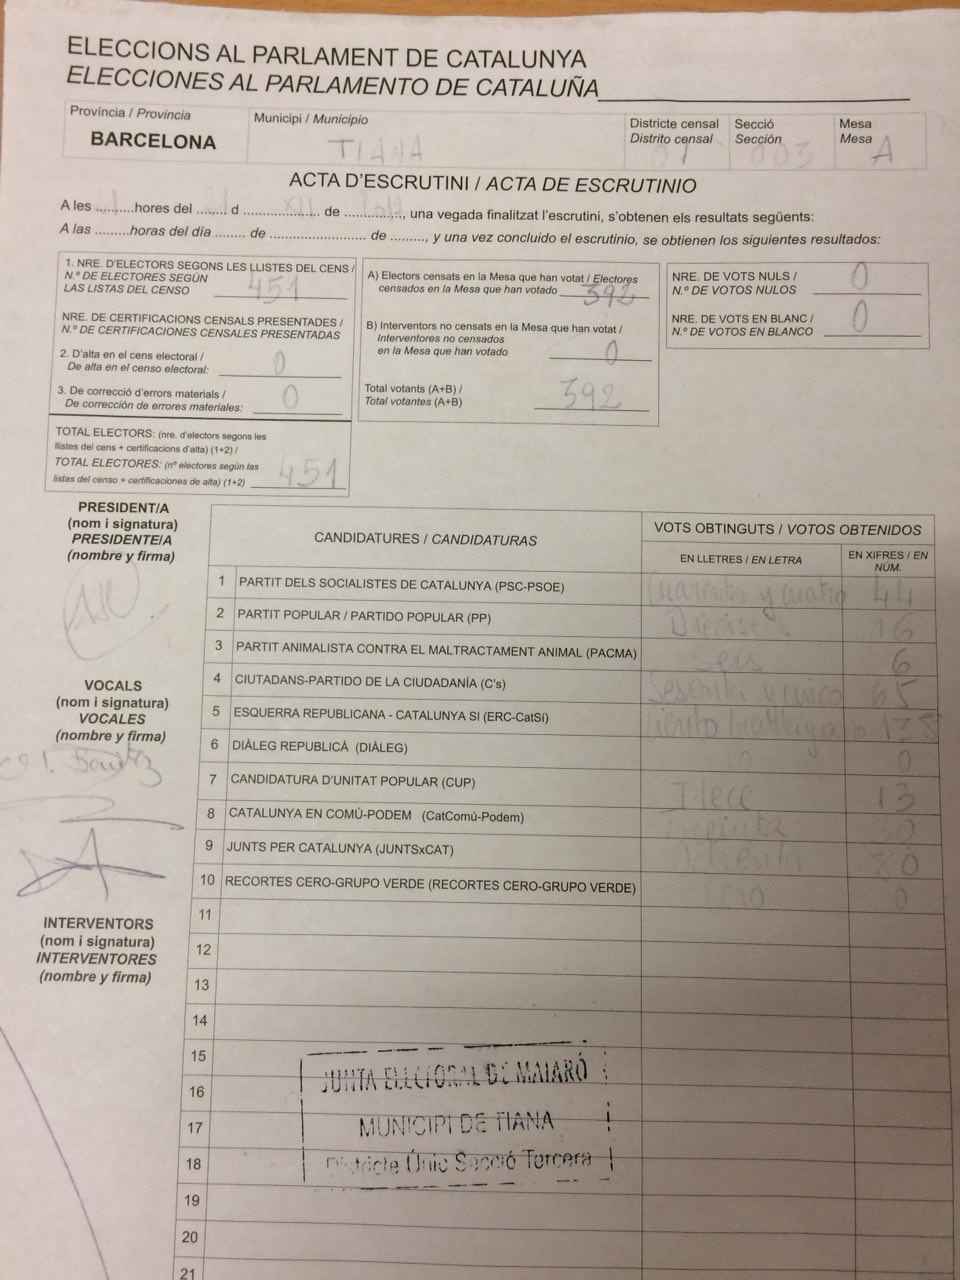 ELECCIONS AL PARLAMENT DE CATALUNYA
ELECCIONES AL PARLAMENTO DE CATALUÑA
Província / Provincia
BARCELONA
Municipi / Municipio
TIANA
Districte censal
Distrito censal
01
Secció
Sección
003
Mesa
Mesa
A
ACTA D'ESCRUTINI / ACTA DE ESCRUTINIO
A les ..........hores del ........ d .................... de ..............., una vegada finalitzat l'escrutini, s'obtenen els resultats següents:
A las .........horas del día ....... de ......................... de ........., y una vez concluido el escrutinio, se obtienen los siguientes resultados:
1. NRE. D'ELECTORS SEGONS LES LLISTES DEL CENS /
N.º DE ELECTORES SEGÚN
LAS LISTAS DEL CENSO 451
NRE. DE CERTIFICACIONS CENSALS PRESENTADES /
N.º DE CERTIFICACIONES CENSALES PRESENTADAS
2. D'alta en el cens electoral /
De alta en el censo electoral: 0
3. De correcció d'errors materials /
De corrección de errores materiales: 0
TOTAL ELECTORS: (nre. d'electors segons les
llistes del cens + certificacions d'alta) (1+2) /
TOTAL ELECTORES: (nº electores según las
listas del censo + certificaciones de alta) (1+2) 451
A) Electors censats en la Mesa que han votat / Electores
censados en la Mesa que han votado 392
B) Interventors no censats en la Mesa que han votat /
Interventores no censados
en la Mesa que han votado 0
Total votants (A+B) /
Total votantes (A+B) 392
NRE. DE VOTS NULS /
N.º DE VOTOS NULOS 0
NRE. DE VOTS EN BLANC /
N.º DE VOTOS EN BLANCO 0
PRESIDENT/A
(nom i signatura)
PRESIDENTE/A
(nombre y firma)
VOCALS
(nom i signatura)
VOCALES
(nombre y firma)
INTERVENTORS
(nom i signatura)
INTERVENTORES
(nombre y firma)
CANDIDATURES / CANDIDATURAS
VOTS OBTINGUTS / VOTOS OBTENIDOS
EN LLETRES / EN LETRA
EN XIFRES / EN NÚM.
1 PARTIT DELS SOCIALISTES DE CATALUNYA (PSC-PSOE) Cuarenta y cuatro 44
2 PARTIT POPULAR / PARTIDO POPULAR (PP) Dieciseis 16
3 PARTIT ANIMALISTA CONTRA EL MALTRACTAMENT ANIMAL (PACMA) Seis 6
4 CIUTADANS-PARTIDO DE LA CIUDADANÍA (C's) Sesenta y cinco 65
5 ESQUERRA REPUBLICANA - CATALUNYA SI (ERC-CatSí) 138
6 DIÀLEG REPUBLICÀ (DIÀLEG) 0
7 CANDIDATURA D'UNITAT POPULAR (CUP) Trece 13
8 CATALUNYA EN COMÚ-PODEM (CatComú-Podem) Treinta 30
9 JUNTS PER CATALUNYA (JUNTSxCAT) Ochenta 80
10 RECORTES CERO-GRUPO VERDE (RECORTES CERO-GRUPO VERDE) Cero 0
11
12
13
14
15
16
17
18
19
20
21
JUNTA ELECTORAL DE MATARÓ
MUNICIPI DE TIANA
Districte Únic Secció Tercera